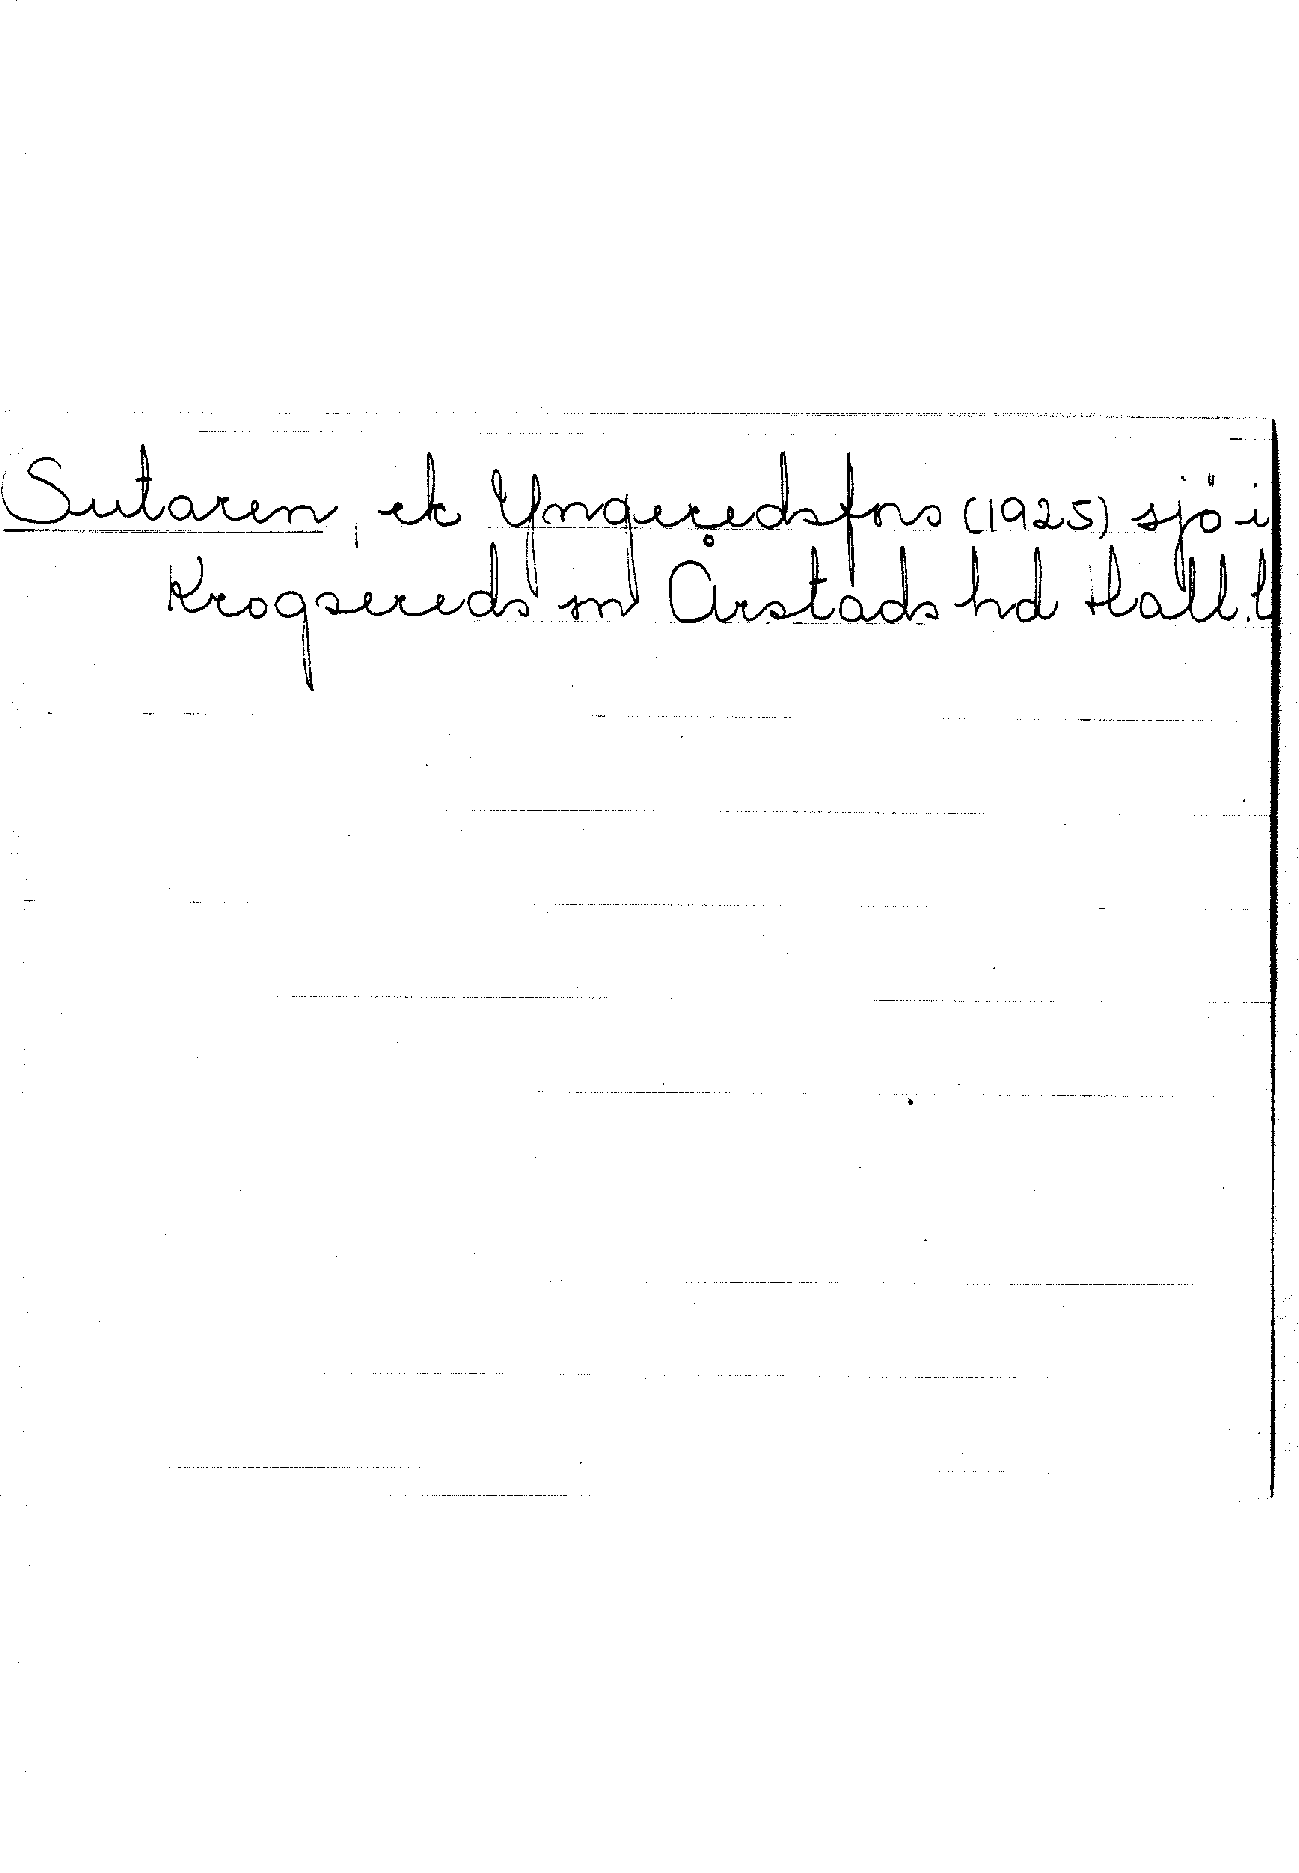 Sutaren, ek Yngeredsfors (1925) sjö i
Krogsereds sn Årstads hd Hall. l